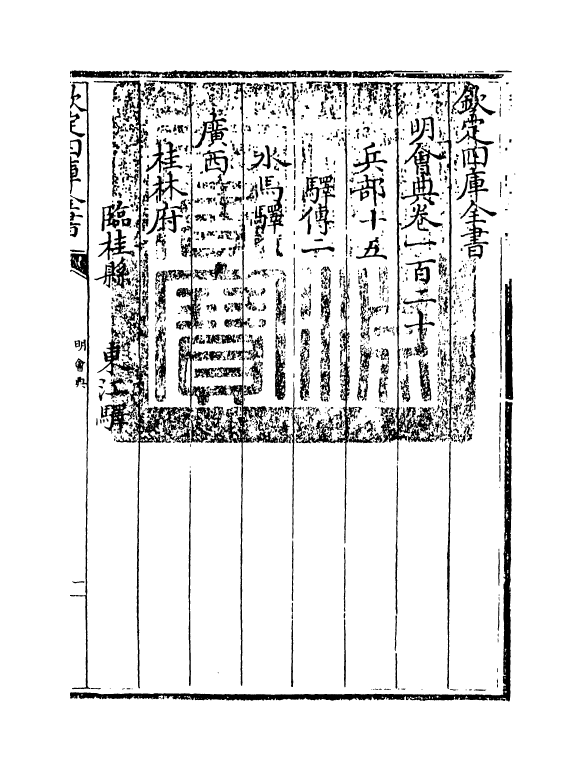 欽定四庫全書
明會典卷一百二十
兵部十五
驛傳二
水馬驛
廣西
桂林府
臨桂縣　東江驛
欽定四庫全書
明會典